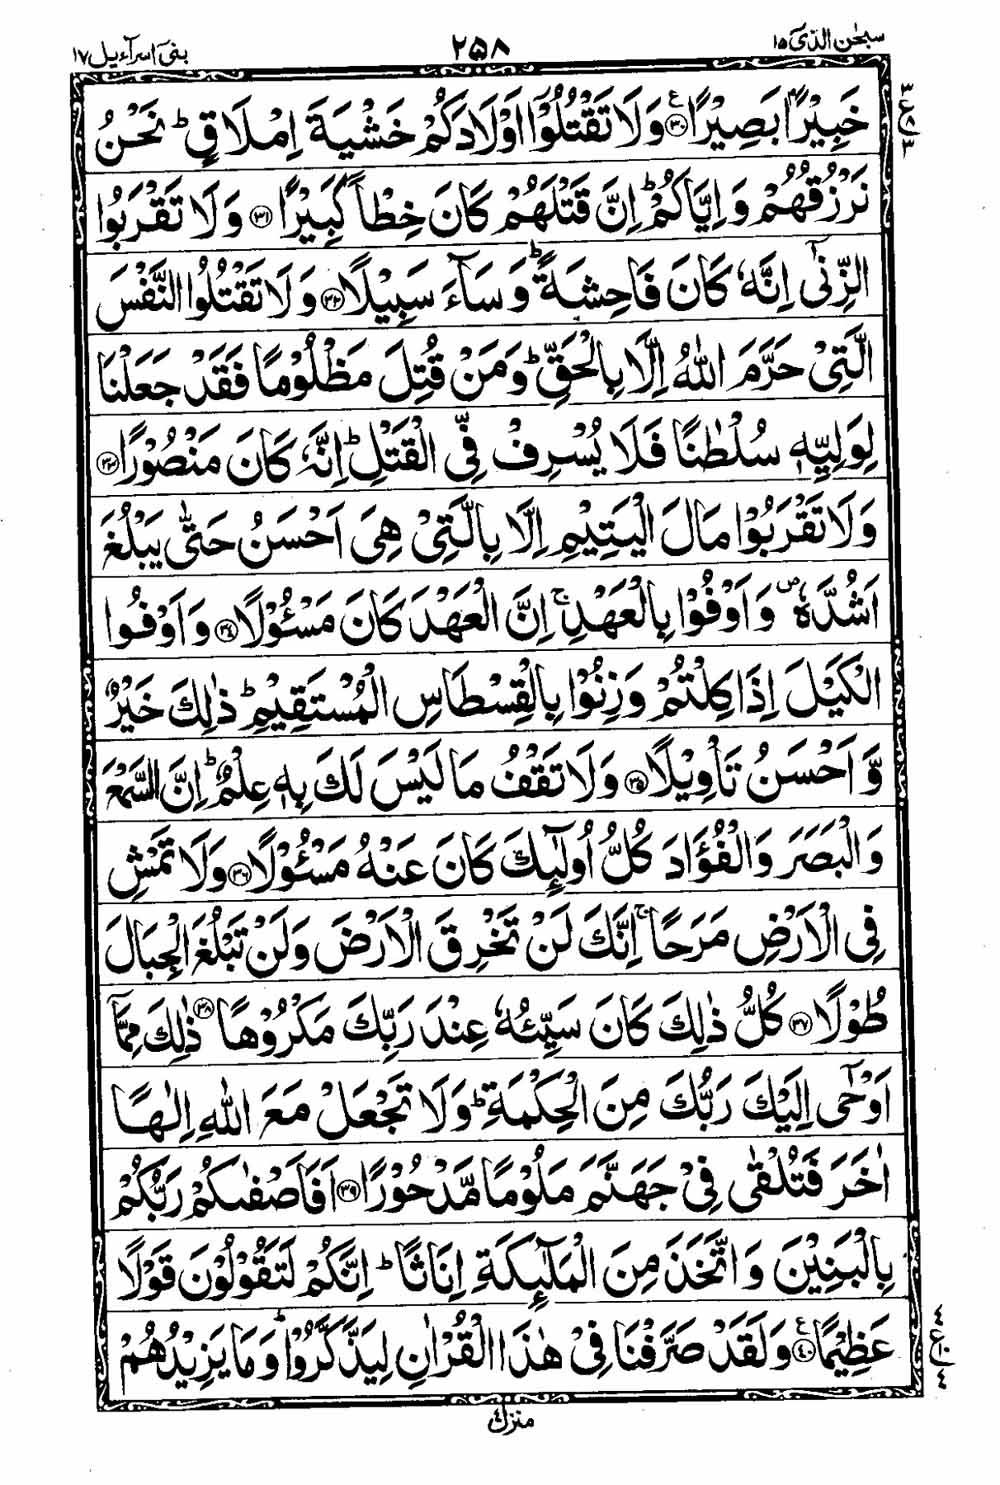 سبحٰن الذی ۱۵ ۲۵۸ بنی اسرآءیل ۱۷
خَبِیْرًۢا بَصِیْرًا ﴿۳۰﴾ ع وَلَا تَقْتُلُوْۤا اَوْلَادَكُمْ خَشْیَةَ اِمْلَاقٍ ؕ نَحْنُ
ع ۳ ۸ ۳
نَرْزُقُهُمْ وَ اِیَّاكُمْ ؕ اِنَّ قَتْلَهُمْ كَانَ خِطْاً كَبِیْرًا ﴿۳۱﴾ وَلَا تَقْرَبُوا
الزِّنٰۤی اِنَّهٗ كَانَ فَاحِشَةً ؕ وَ سَآءَ سَبِیْلًا ﴿۳۲﴾ وَلَا تَقْتُلُوا النَّفْسَ
الَّتِیْ حَرَّمَ اللّٰهُ اِلَّا بِالْحَقِّ ؕ وَمَنْ قُتِلَ مَظْلُوْمًا فَقَدْ جَعَلْنَا
لِوَلِیِّهٖ سُلْطٰنًا فَلَا یُسْرِفْ فِّی الْقَتْلِ ؕ اِنَّهٗ كَانَ مَنْصُوْرًا ﴿۳۳﴾
وَلَا تَقْرَبُوْا مَالَ الْیَتِیْمِ اِلَّا بِالَّتِیْ هِیَ اَحْسَنُ حَتّٰی یَبْلُغَ
اَشُدَّهٗ ۪ وَ اَوْفُوْا بِالْعَهْدِ ۚ اِنَّ الْعَهْدَ كَانَ مَسْـُٔوْلًا ﴿۳۴﴾ وَ اَوْفُوا
الْكَیْلَ اِذَا كِلْتُمْ وَ زِنُوْا بِالْقِسْطَاسِ الْمُسْتَقِیْمِ ؕ ذٰلِكَ خَیْرٌ
وَّ اَحْسَنُ تَاْوِیْلًا ﴿۳۵﴾ وَلَا تَقْفُ مَا لَیْسَ لَكَ بِهٖ عِلْمٌ ؕ اِنَّ السَّمْعَ
وَ الْبَصَرَ وَ الْفُؤَادَ كُلُّ اُولٰٓئِكَ كَانَ عَنْهُ مَسْـُٔوْلًا ﴿۳۶﴾ وَلَا تَمْشِ
فِی الْاَرْضِ مَرَحًا ۚ اِنَّكَ لَنْ تَخْرِقَ الْاَرْضَ وَلَنْ تَبْلُغَ الْجِبَالَ
طُوْلًا ﴿۳۷﴾ كُلُّ ذٰلِكَ كَانَ سَیِّئُهٗ عِنْدَ رَبِّكَ مَكْرُوْهًا ﴿۳۸﴾ ذٰلِكَ مِمَّاۤ
اَوْحٰۤی اِلَیْكَ رَبُّكَ مِنَ الْحِكْمَةِ ؕ وَلَا تَجْعَلْ مَعَ اللّٰهِ اِلٰهًا
اٰخَرَ فَتُلْقٰی فِیْ جَهَنَّمَ مَلُوْمًا مَّدْحُوْرًا ﴿۳۹﴾ اَفَاَصْفٰىكُمْ رَبُّكُمْ
بِالْبَنِیْنَ وَ اتَّخَذَ مِنَ الْمَلٰٓئِكَةِ اِنَاثًا ؕ اِنَّكُمْ لَتَقُوْلُوْنَ قَوْلًا
عَظِیْمًا ﴿۴۰﴾ ع وَلَقَدْ صَرَّفْنَا فِیْ هٰذَا الْقُرْاٰنِ لِیَذَّكَّرُوْا ؕ وَمَا یَزِیْدُهُمْ
ع ۴ ۱۰ ۴
منزل ۴